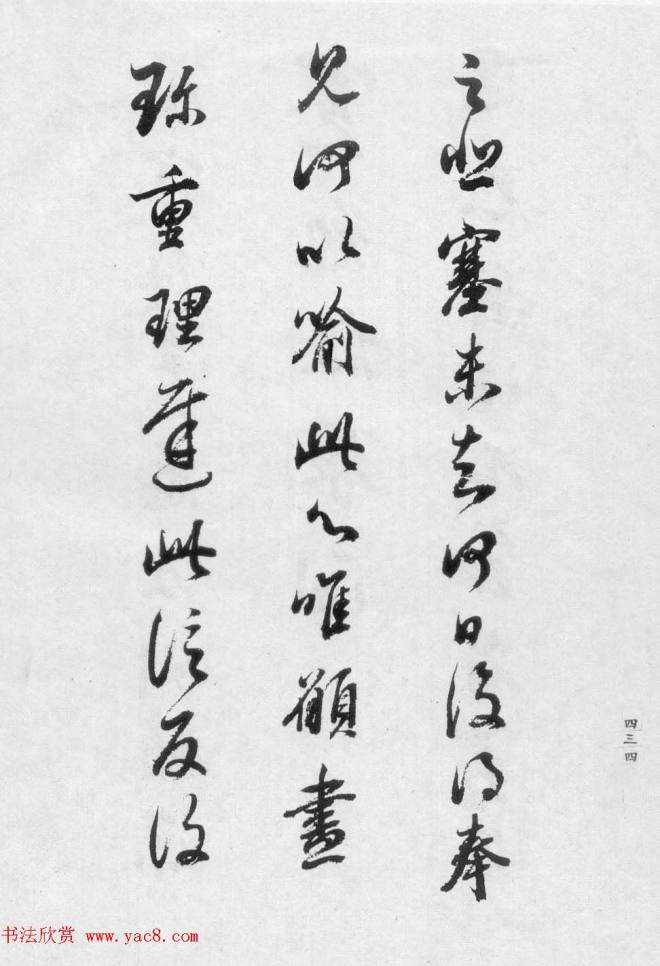 之悲塞未知何日復得奉
見何以喻此心唯願盡
珍重理遲此信反復
四三四
书法欣赏 www.yac8.com